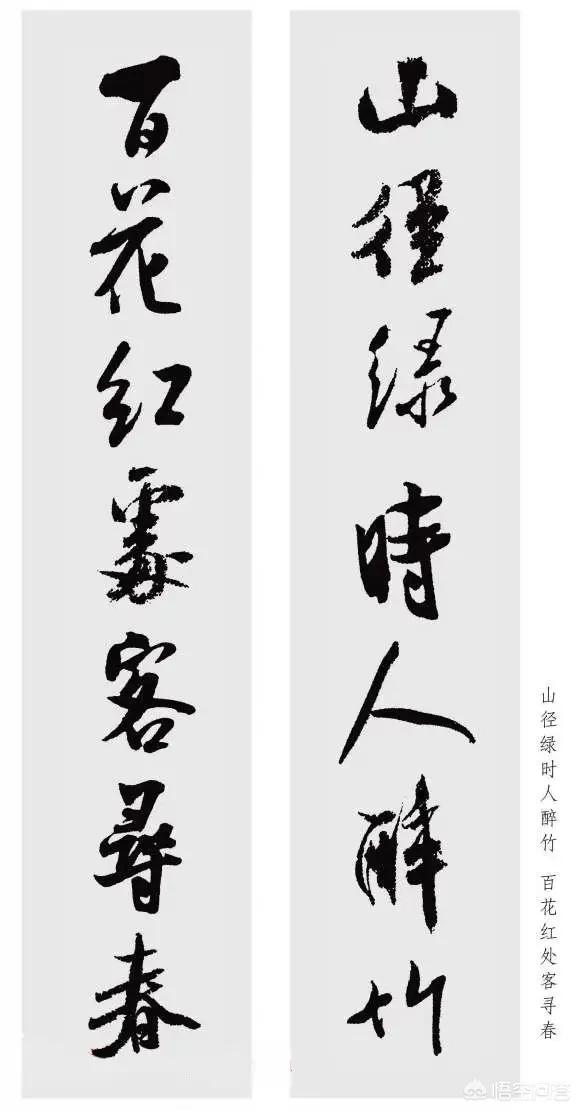 山徑绿時人醉竹
百花红處客尋春
山径绿时人醉竹 百花红处客寻春
悟空问答